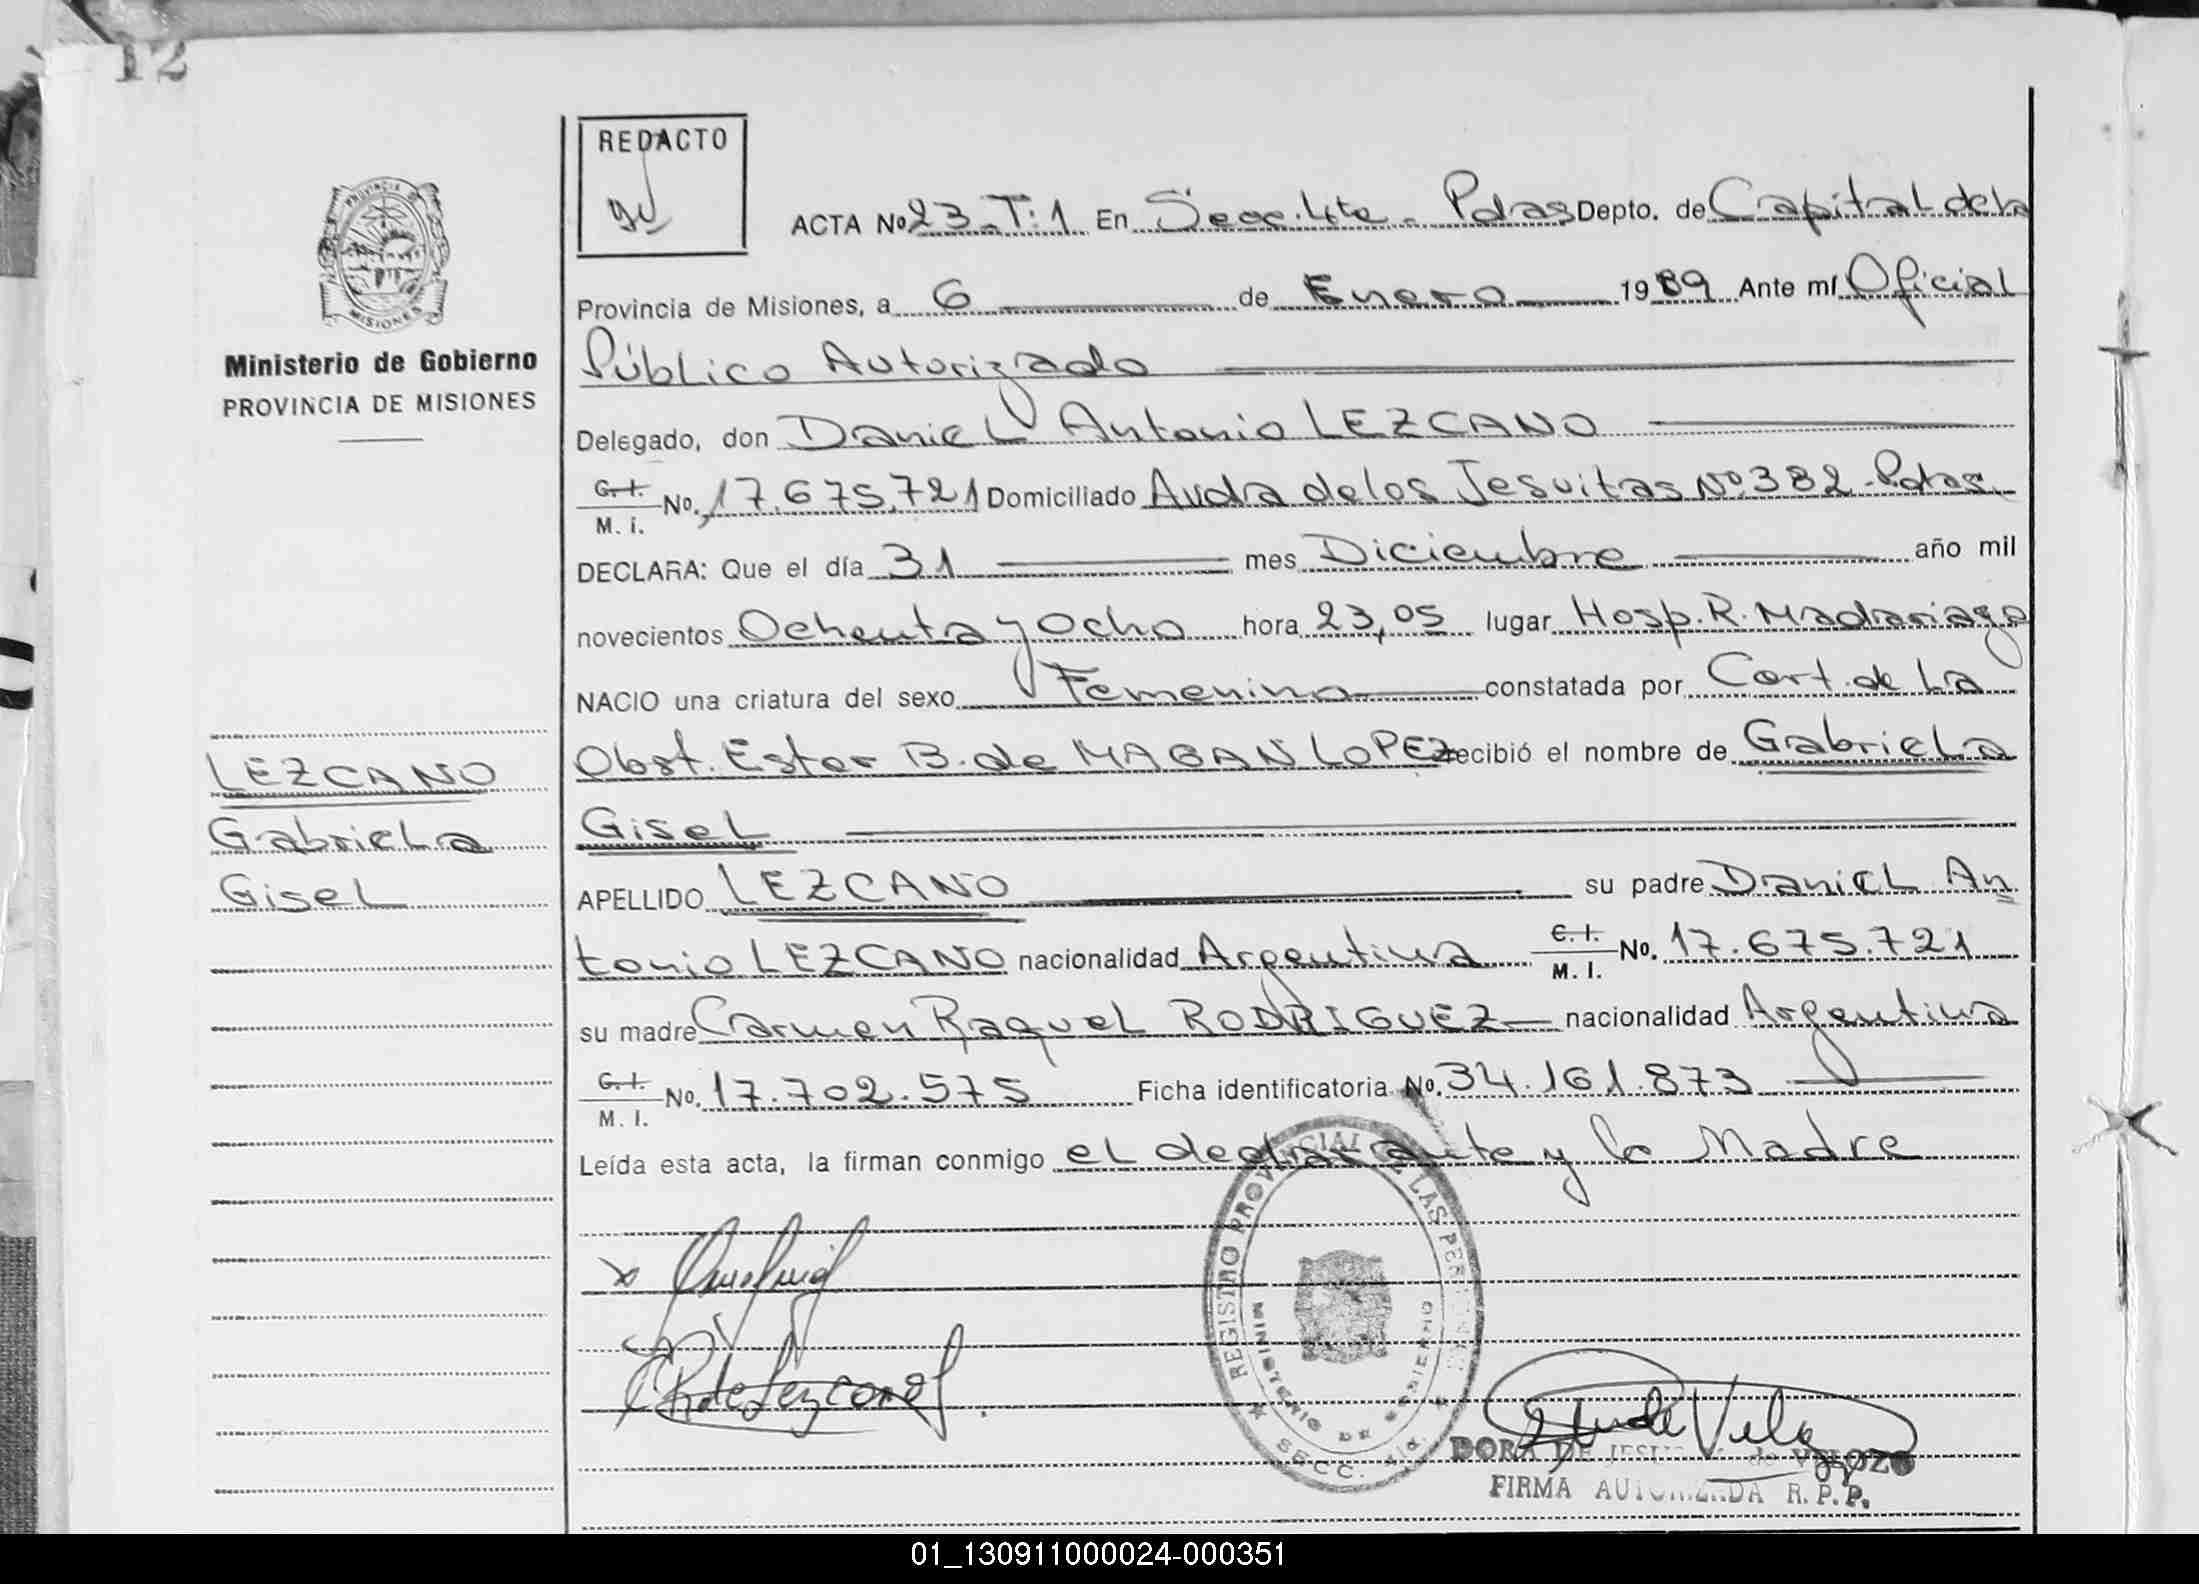 12
REDACTO
PROVINCIA DE
MISIONES
Ministerio de Gobierno
PROVINCIA DE MISIONES
ACTA No 23 - T: 1 En Secc. 4ta - Pdas Depto. de Capital de la
Provincia de Misiones, a 6 de Enero 1989 Ante mí Oficial
Público Autorizado
Delegado, don Daniel Antonio LEZCANO
C.I. M. i. No. 17.675.721 Domiciliado Avda de los Jesuitas No 382 - Pdas
DECLARA: Que el día 31 mes Diciembre año mil
novecientos Ochenta y Ocho hora 23,05 lugar Hosp. R. Madariaga
NACIO una criatura del sexo Femenino constatada por Cert. de la
Obst. Ester B. de MAGAN LOPEZ recibió el nombre de Gabriela
Gisel
APELLIDO LEZCANO su padre Daniel An
tonio LEZCANO nacionalidad Argentina C.I. M. I. No. 17.675.721
su madre Carmen Raquel RODRIGUEZ nacionalidad Argentina
C.I. M. I. No. 17.702.575 Ficha identificatoria No. 34.161.873
Leída esta acta, la firman conmigo el declarante y la Madre
LEZCANO
Gabriela
Gisel
REGISTRO PROVINCIAL DE LAS PERSONAS
MINISTERIO DE GOBIERNO
SECC. 4ta.
C R de Lezcano
DORA DE JESUS de VELOZO
FIRMA AUTORIZADA R. P. P.
01_130911000024-000351